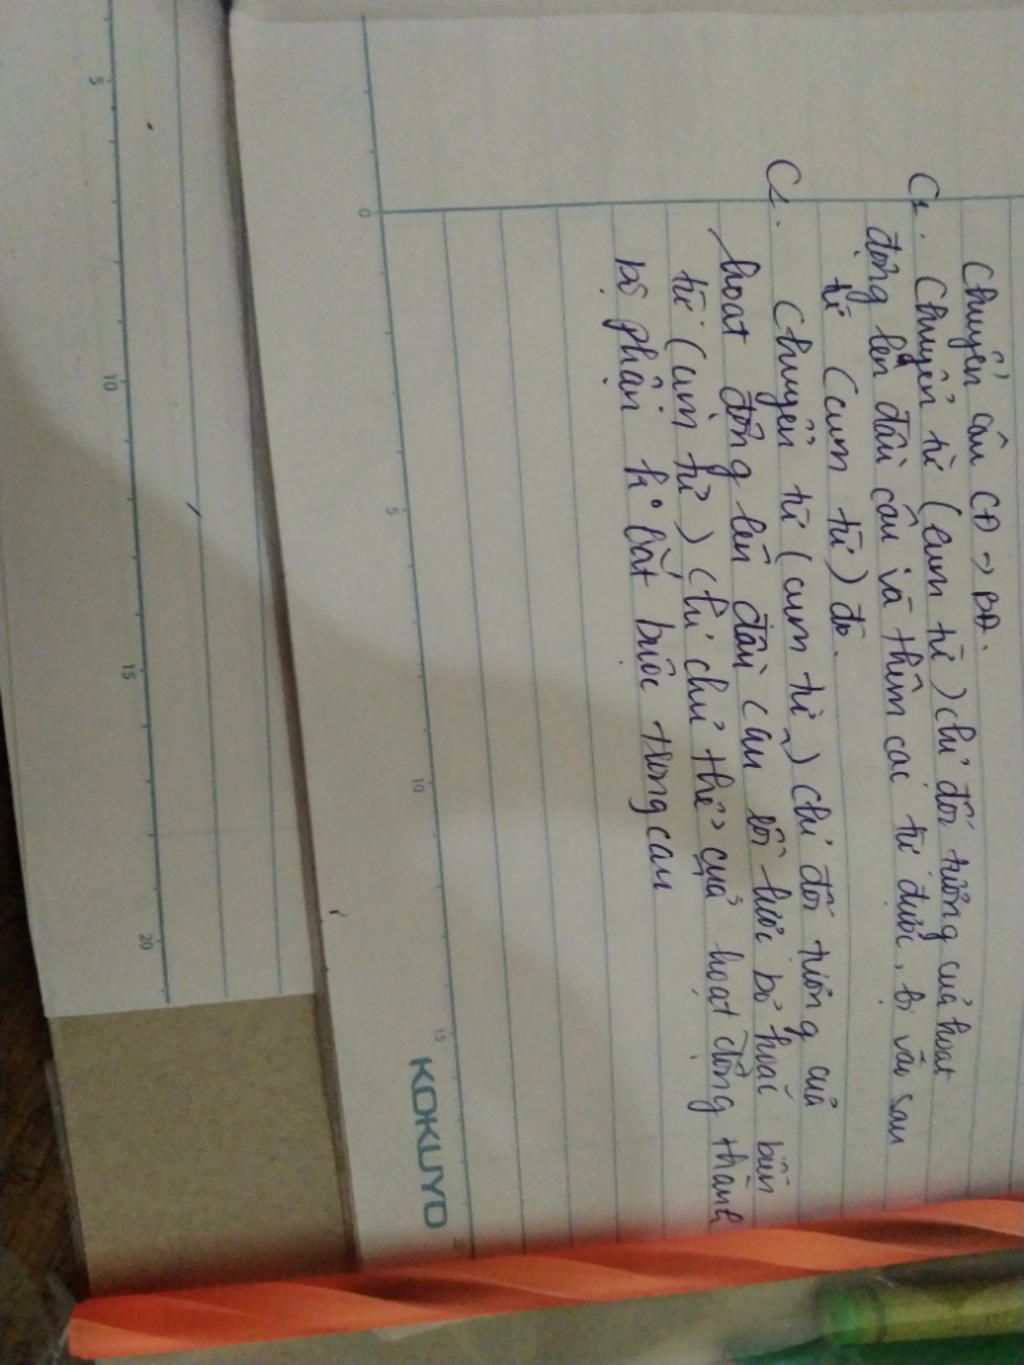 Chuyển câu CĐ → BĐ.
C1. Chuyển từ (cụm từ) chỉ đối tượng của hoạt
động lên đầu câu và thêm các từ được, bị vào sau
từ (cụm từ) đó.
C2. Chuyển từ (cụm từ) chỉ đối tượng của
hoạt động lên đầu câu rồi lược bỏ hoặc biến
từ (cụm từ) chỉ chủ thể của hoạt động thành
bộ phận k° bắt buộc trong câu
KOKUYO
5
10
15
20
0
5
10
15